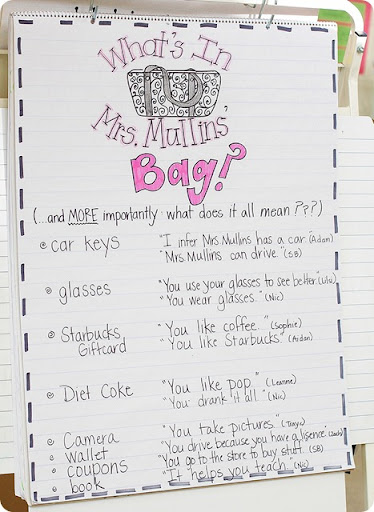 What's In
Mrs. Mullins'
Bag?
(...and MORE importantly what does it all mean ???)
car keys "I infer Mrs. Mullins has a car." (Aidan)
"Mrs. Mullins can drive." (SB)
glasses "You use your glasses to see better." (Lulu)
"You wear glasses." (Nic)
Starbucks "You like coffee." (Sophie)
Giftcard "You like Starbucks." (Aidan)
Diet Coke "You like pop." (Leanne)
"You drank it all." (Nic)
Camera "You take pictures."
wallet "You drive because you have a lisence."
coupons "You go to the store to buy stuff." (SB)
book "It helps you teach." (Nic)